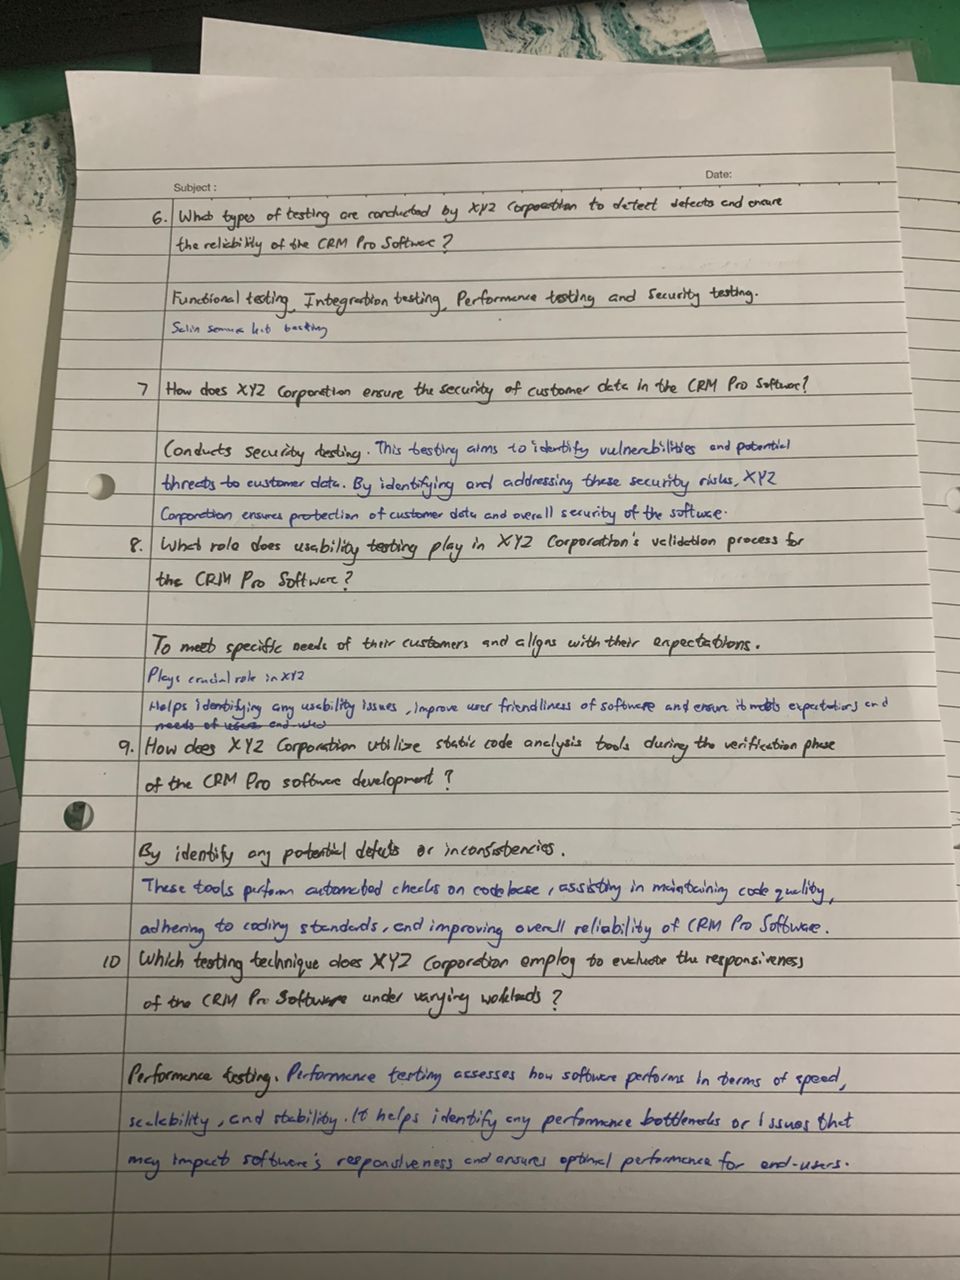 Subject :
Date:
6. What types of testing are conducted by XYZ Corporation to detect defects and ensure
the reliability of the CRM Pro Software ?
Functional testing, Integration testing, Performance testing and Security testing.
Salin semua kat
7 How does XYZ Corporation ensure the security of customer data in the CRM Pro Software?
Conducts security testing. This testing aims to identify vulnerabilities and potential
threats to customer data. By identifying and addressing these security risks, XYZ
Corporation ensures protection of customer data and overall security of the software.
8. What role does usability testing play in XYZ Corporation's validation process for
the CRM Pro Software ?
To meet specific needs of their customers and aligns with their expectations.
Plays crucial role in XYZ
Helps identifying any usability issues, improve user friendliness of software and ensure it meets expectations and
needs of users end used
9. How does XYZ Corporation utilize static code analysis tools during the verification phase
of the CRM Pro software development ?
By identify any potential defects or inconsistencies.
These tools perform automated checks on codebase, assisting in maintaining code quality,
adhering to coding standards, and improving overall reliability of CRM Pro Software.
10 Which testing technique does XYZ Corporation employ to evaluate the responsiveness
of the CRM Pro Software under varying workloads ?
Performance testing. Performance testing assesses how software performs in terms of speed,
scalability, and stability. It helps identify any performance bottlenecks or issues that
may impact software's responsiveness and ensures optimal performance for end-users.